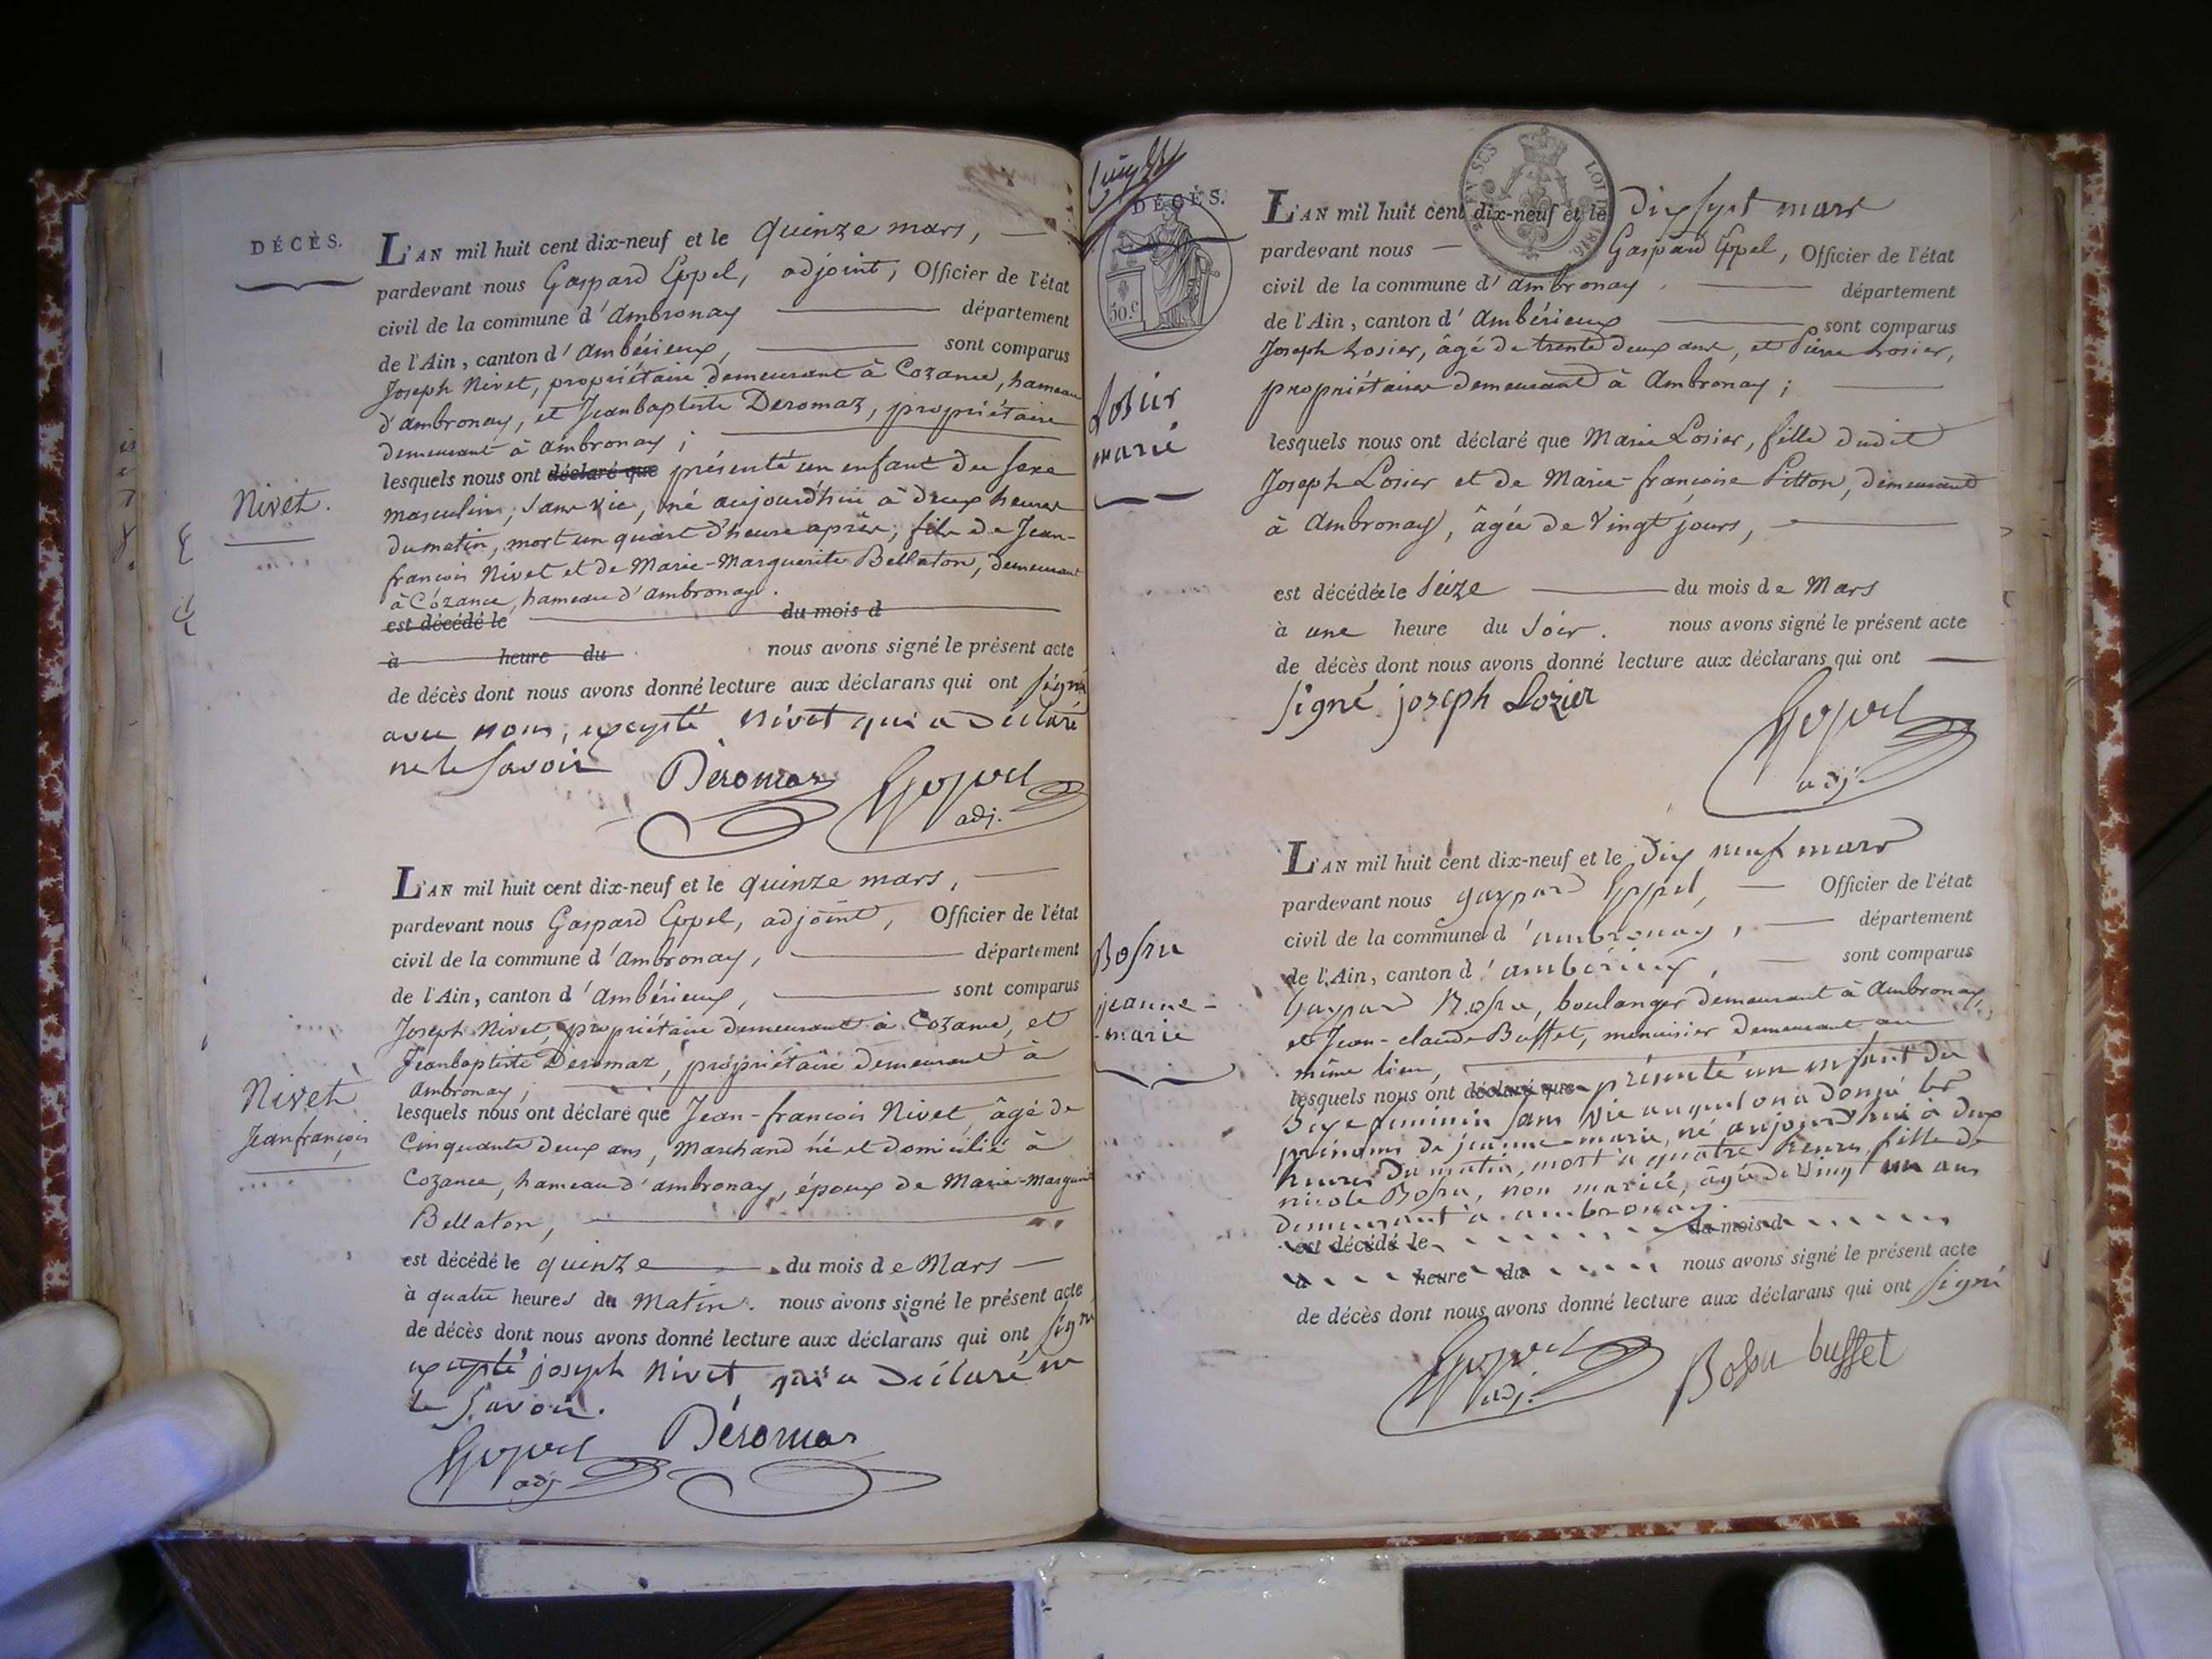 DÉCÈS.
L'AN mil huit cent dix-neuf et le quinze mars,
pardevant nous Gaspard Eppel, adjoint, Officier de l'état
civil de la commune d'ambronay département
de l'Ain, canton d'ambérieux, sont comparus
Joseph Nivet, propriétaire demeurant à Cozance, hameau
d'ambronay, et Jeanbaptiste Deromaz, propriétaire
demeurant à ambronay;
lesquels nous ont déclaré que présenté un enfant du sexe
Nivet.
masculin, sans vie, né aujourd'hui à deux heures
du matin, mort un quart d'heure après, fils de Jean-
françois Nivet et de Marie-Marguerite Bellaton, demeurant
à Cozance, hameau d'ambronay.
est décédé le du mois d
à heure du nous avons signé le présent acte
de décès dont nous avons donné lecture aux déclarans qui ont signé
avec nous, excepté Nivet qui a déclaré
ne le savoir
Deromas
Eppel
adj.
L'AN mil huit cent dix-neuf et le quinze mars,
pardevant nous Gaspard Eppel, adjoint, Officier de l'état
civil de la commune d'ambronay, département
de l'Ain, canton d'ambérieux, sont comparus
Joseph Nivet, propriétaire demeurant à Cozance, et
Jeanbaptiste Deromaz, propriétaire demeurant à
ambronay,
Nivet
Jeanfrançois
lesquels nous ont déclaré que Jean-françois Nivet, âgé de
Cinquante deux ans, Marchand né et domicilié à
Cozance, hameau d'ambronay, époux de Marie-Marguerite
Bellaton,
est décédé le quinze du mois de Mars
à quatre heures du Matin. nous avons signé le présent acte
de décès dont nous avons donné lecture aux déclarans qui ont signé
excepté joseph Nivet, qui a déclaré ne
le Savoir.
Eppel
adj
Déromas
DÉCÈS.
50.C
LOI 1816
L'AN mil huit cent dix-neuf et le dix sept mars
pardevant nous Gaspard Eppel, Officier de l'état
civil de la commune d'ambronay département
de l'Ain, canton d'ambérieux sont comparus
Joseph Losier, âgé de trente deux ans, et Pierre Losier,
propriétaires demeurant à Ambronay;
Losier
marie
lesquels nous ont déclaré que Marie Losier, fille dudit
Joseph Losier et de Marie-françoise Pitton, demeurant
à Ambronay, âgée de Vingt jours,
est décédée le Seize du mois de Mars
à une heure du Soir. nous avons signé le présent acte
de décès dont nous avons donné lecture aux déclarans qui ont
signé joseph Lozier
Eppel
adj.
L'AN mil huit cent dix-neuf et le dix neuf mars
pardevant nous gaspard Eppel, Officier de l'état
civil de la commune d'ambronay, département
de l'Ain, canton d'ambérieux, sont comparus
Bossu
jeanne-
-marie
Gaspard Bossu, boulanger demeurant à Ambronay,
et Jean-claude Buffet, menuisier demeurant au
même lieu,
lesquels nous ont déclaré que présenté un enfant du
sexe feminin sans vie auquel on a donné les
prénoms de jeanne-marie, né aujourd'hui à deux
heures du matin, mort à quatre heures, fille de
nicole Bossu, non mariée, âgée de Vingt un ans
demeurant à ambronay.
est décédé le du mois d
à heure du nous avons signé le présent acte
de décès dont nous avons donné lecture aux déclarans qui ont signé
Eppel
adj.
Bossu buffet